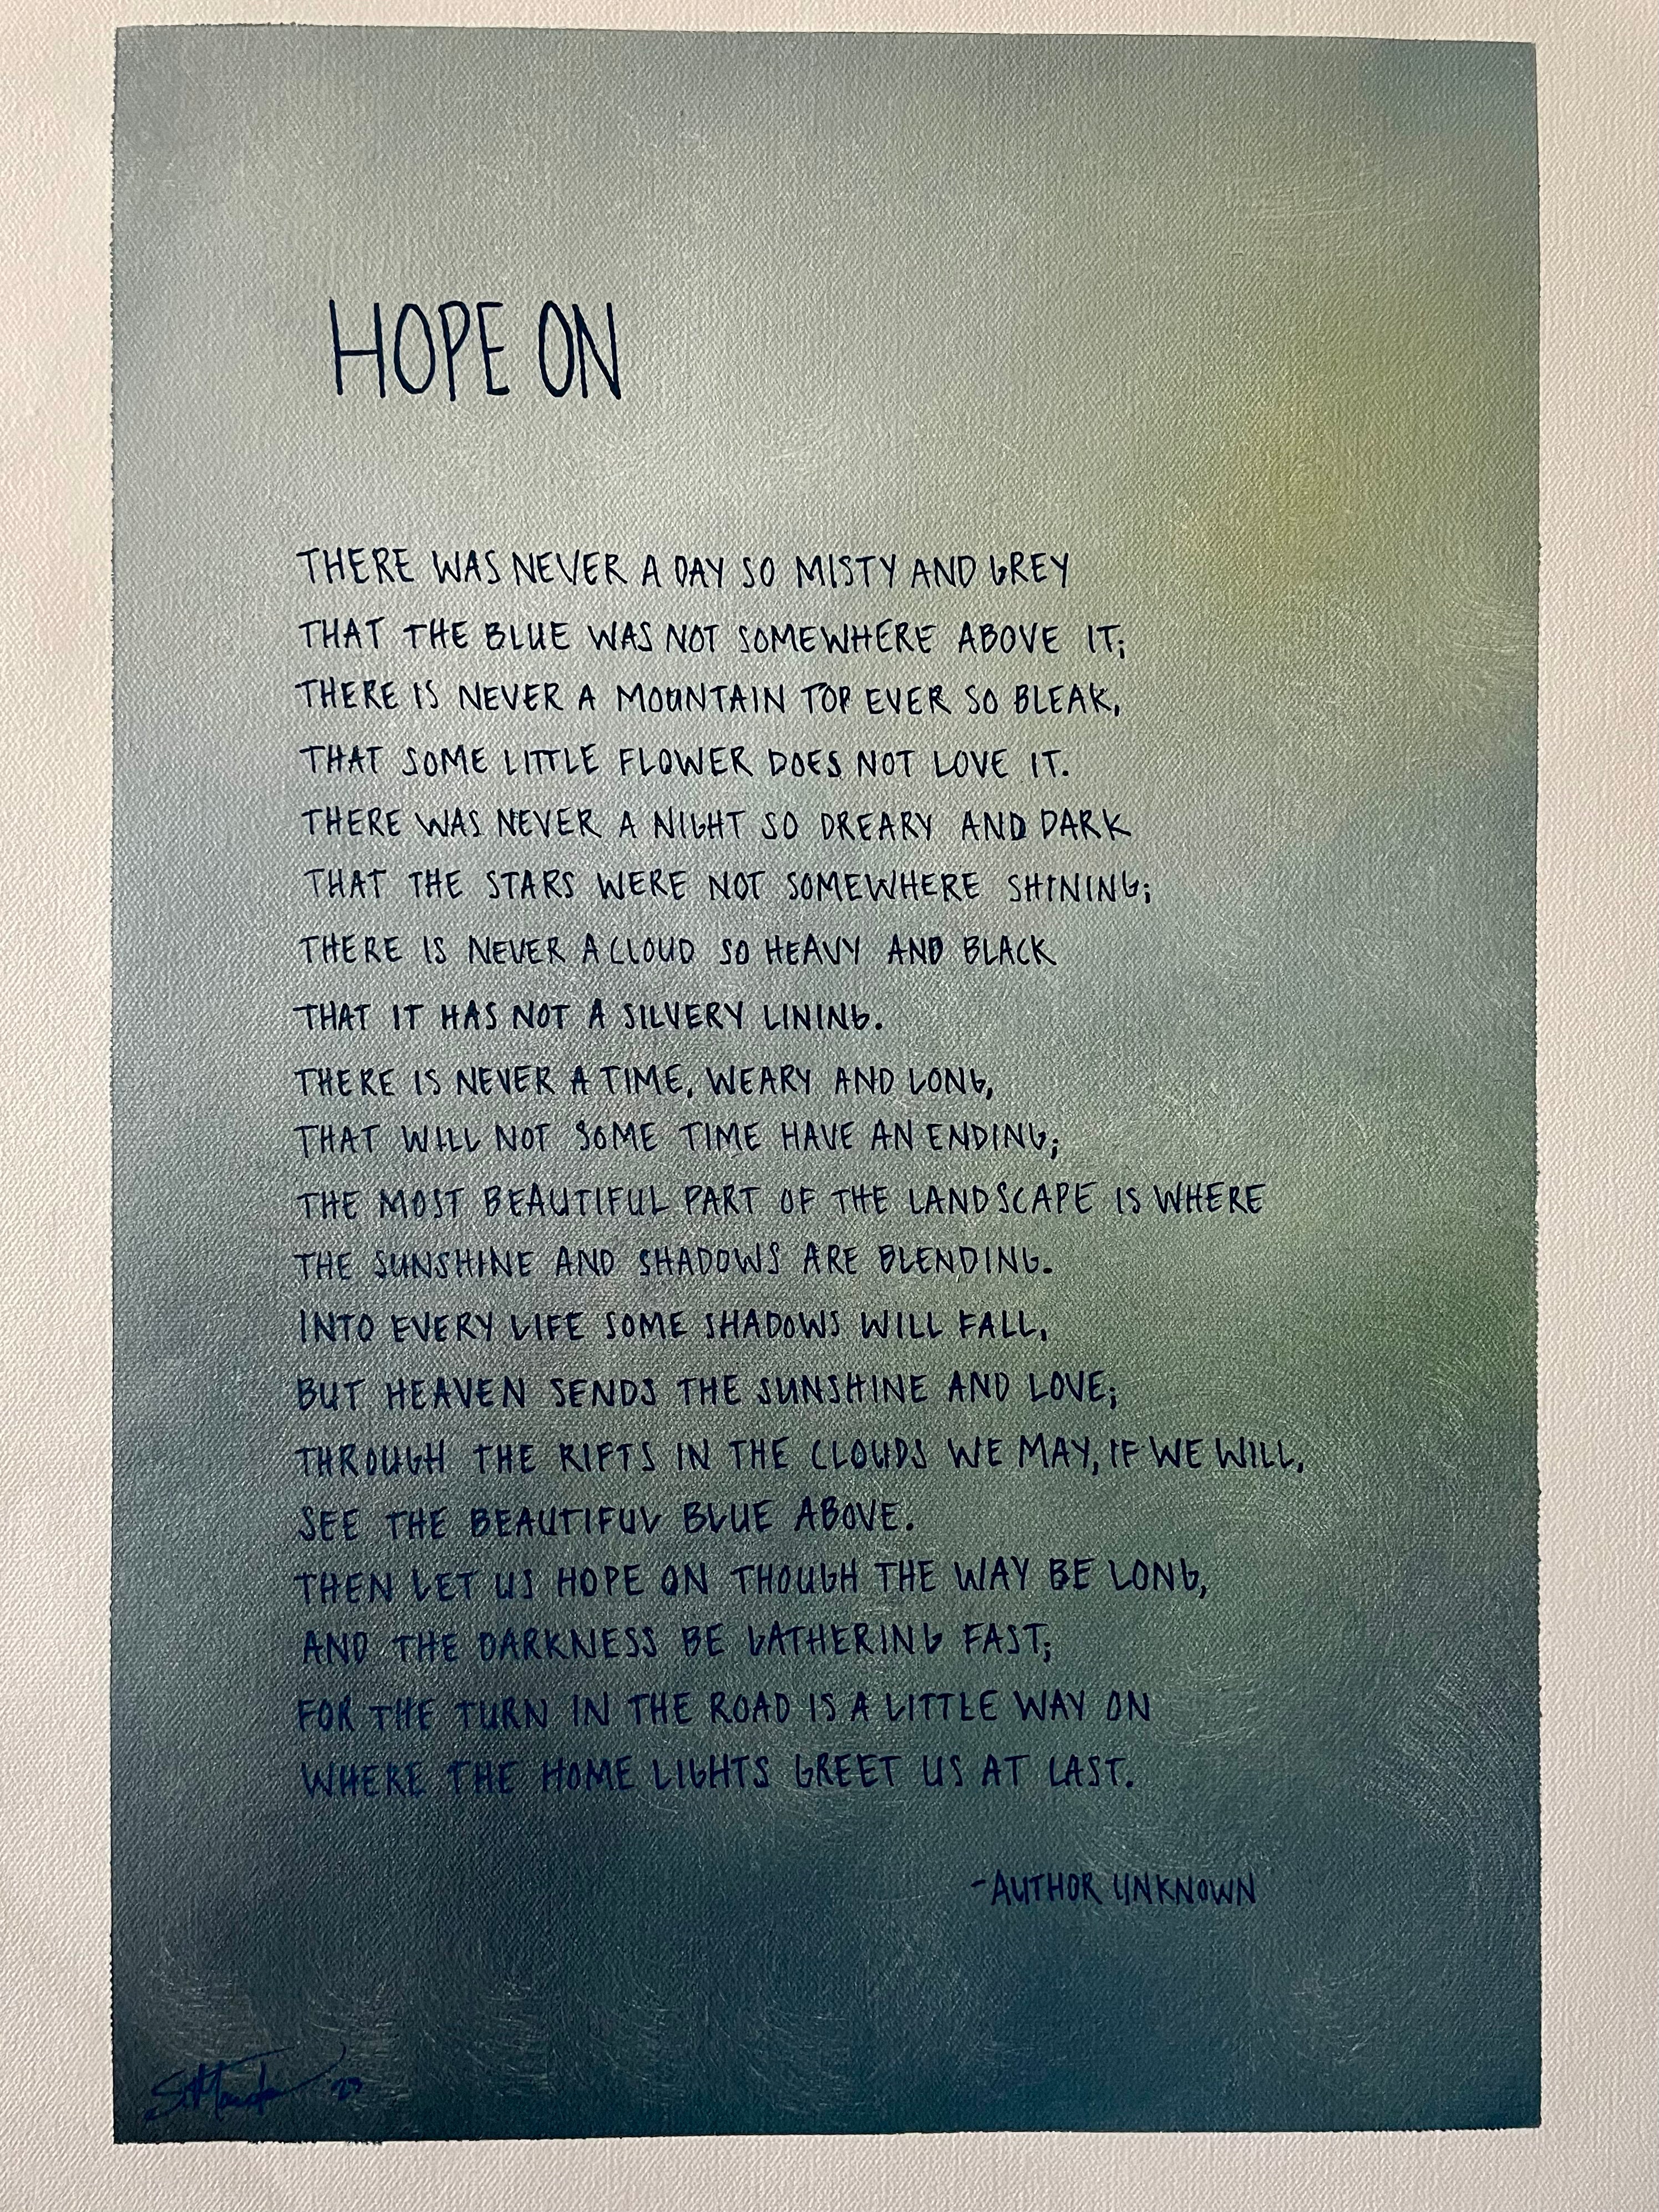 HOPE ON
THERE WAS NEVER A DAY SO MISTY AND GREY
THAT THE BLUE WAS NOT SOMEWHERE ABOVE IT;
THERE IS NEVER A MOUNTAIN TOP EVER SO BLEAK,
THAT SOME LITTLE FLOWER DOES NOT LOVE IT.
THERE WAS NEVER A NIGHT SO DREARY AND DARK
THAT THE STARS WERE NOT SOMEWHERE SHINING;
THERE IS NEVER A CLOUD SO HEAVY AND BLACK
THAT IT HAS NOT A SILVERY LINING.
THERE IS NEVER A TIME, WEARY AND LONG,
THAT WILL NOT SOME TIME HAVE AN ENDING;
THE MOST BEAUTIFUL PART OF THE LANDSCAPE IS WHERE
THE SUNSHINE AND SHADOWS ARE BLENDING.
INTO EVERY LIFE SOME SHADOWS WILL FALL,
BUT HEAVEN SENDS THE SUNSHINE AND LOVE;
THROUGH THE RIFTS IN THE CLOUDS WE MAY, IF WE WILL,
SEE THE BEAUTIFUL BLUE ABOVE.
THEN LET US HOPE ON THOUGH THE WAY BE LONG,
AND THE DARKNESS BE GATHERING FAST;
FOR THE TURN IN THE ROAD IS A LITTLE WAY ON
WHERE THE HOME LIGHTS GREET US AT LAST.
-AUTHOR UNKNOWN